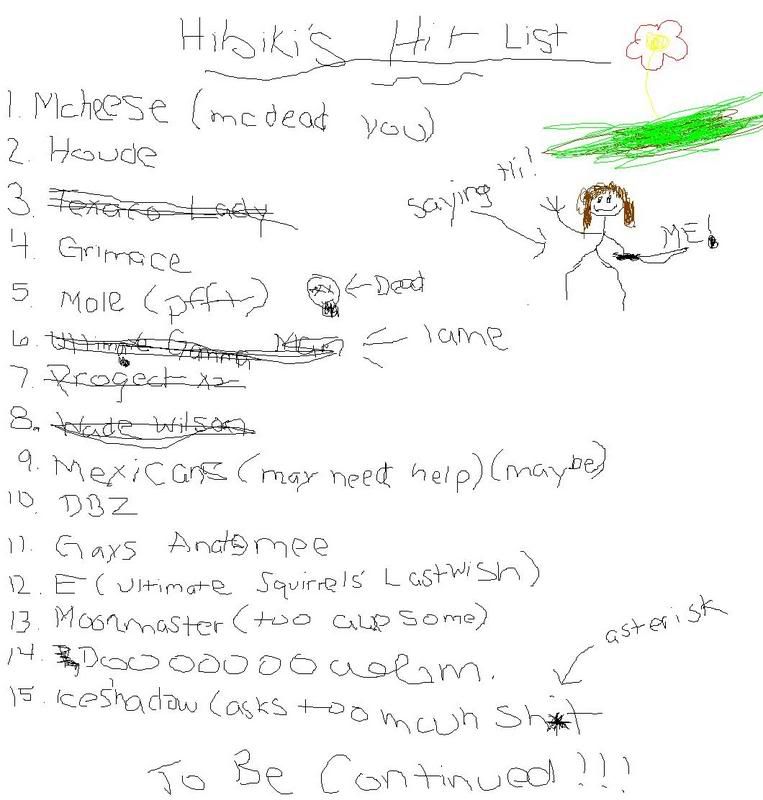 Hibiki's Hit List
1. Mcheese (mcdead you)
2. Houde
saying Hi!
3. Texaco Lady
ME!
4. Grimace
5. Mole (pfft) Dead
6. Ultimate Gamma Man lame
7. Progect x2
8. Wade Wilson
9. Mexicans (may need help) (maybe)
10. DBZ
11. Gays Anatomee
12. E (Ultimate Squirrels Lastwish)
13. Moonmaster (too awesome)
asterisk
14.
15. Iceshadow (asks too much sh*t
To Be Continued!!!